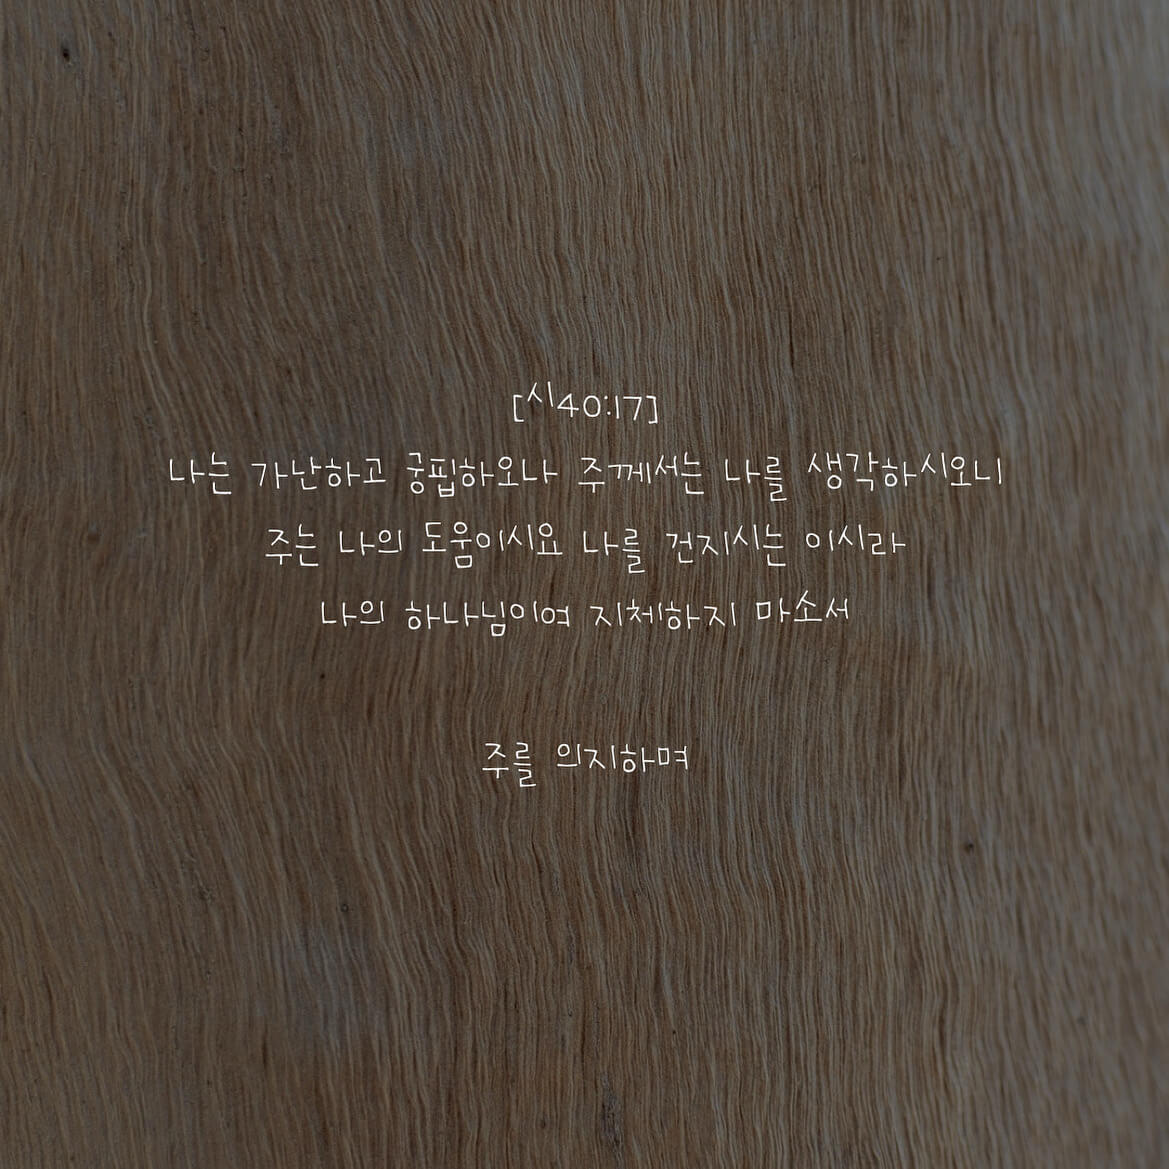 [시40:17]
나는 가난하고 궁핍하오나 주께서는 나를 생각하시오니
주는 나의 도움이시요 나를 건지시는 이시라
나의 하나님이여 지체하지 마소서
주를 의지하며